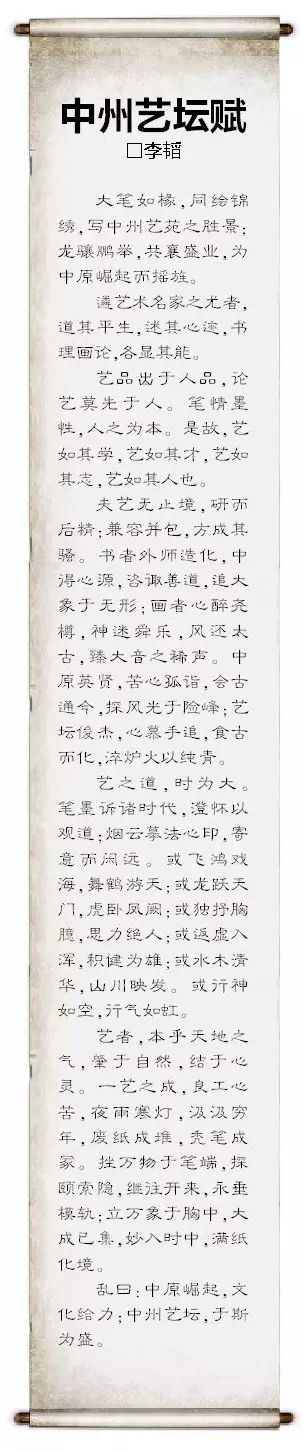 中州艺坛赋
□李韬
大笔如椽,同绘锦
绣,写中州艺苑之胜景;
龙骧鹏举,共襄盛业,为
中原崛起而摇旌。
遴艺术名家之尤者,
道其平生,述其心迹,书
理画论,各显其能。
艺品出于人品,论
艺莫先于人。笔情墨
性,人之为本。是故,艺
如其学,艺如其才,艺如
其志,艺如其人也。
夫艺无止境,研而
后精;兼容并包,方成其
骚。书者外师造化,中
得心源,咨诹善道,追大
象于无形;画者心醉尧
樽,神迷舜乐,风还太
古,臻大音之稀声。中
原英贤,苦心孤诣,会古
通今,探风光于险峰;艺
坛俊杰,心慕手追,食古
而化,淬炉火以纯青。
艺之道,时为大。
笔墨诉诸时代,澄怀以
观道;烟云摹法心印,寄
意而闲远。或飞鸿戏
海,舞鹤游天;或龙跃天
门,虎卧凤阙;或独抒胸
臆,思力绝人;或返虚入
浑,积健为雄;或水木清
华,山川映发。或行神
如空,行气如虹。
艺者,本乎天地之
气,肇于自然,结于心
灵。一艺之成,良工心
苦,夜雨寒灯,汲汲穷
年,废纸成堆,秃笔成
冢。挫万物于笔端,探
颐索隐,继往开来,永垂
模轨;立万象于胸中,大
成已集,妙入时中,满纸
化境。
乱曰:中原崛起,文
化给力;中州艺坛,于斯
为盛。